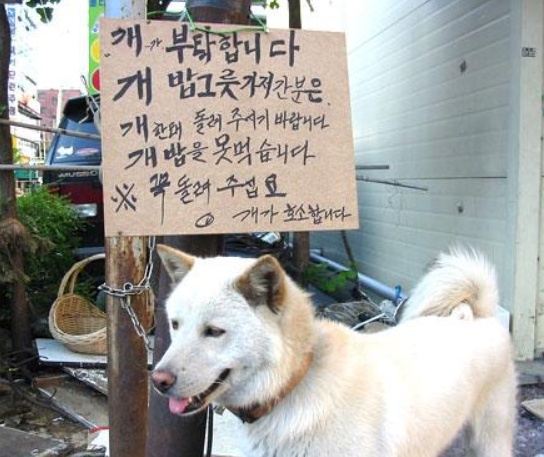 개가 부탁합니다
개 밥그릇 가져간분은
개한테 돌려 주시기 바랍니다
개 밥을 못먹습니다
※ 꼭 돌려 주십요
개가 호소합니다
MUSSO